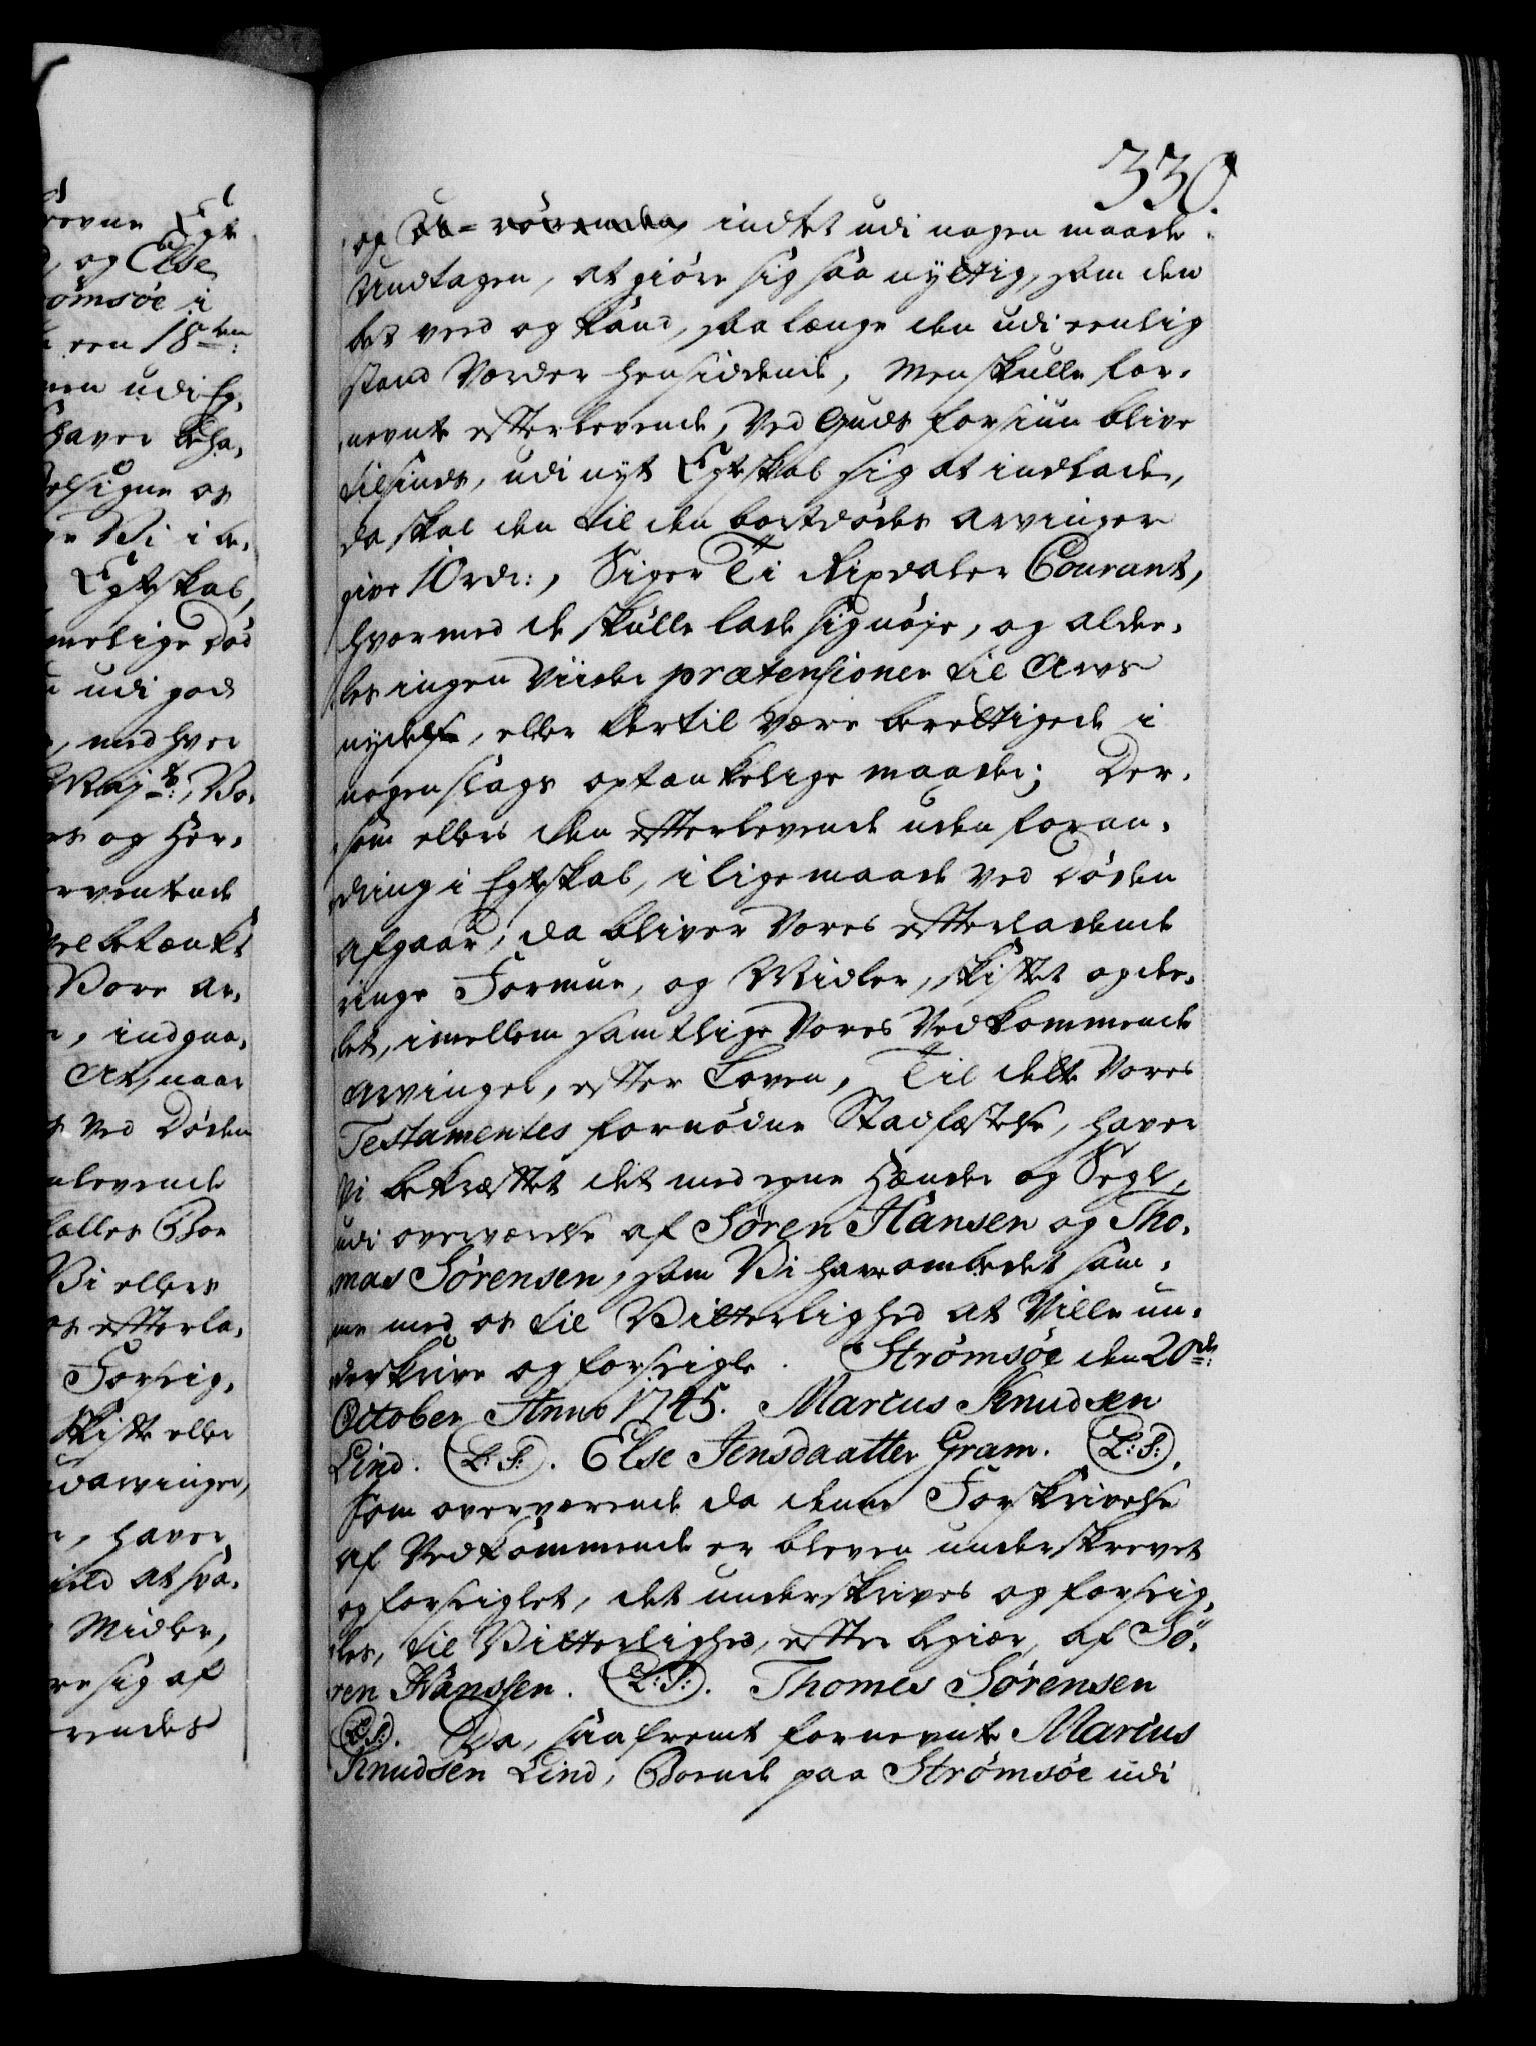 330.
og Ub- rörendes indtet udi nogen maade
Undtagen, at giöre sig saa nyttig, som den
best veed og kand, saa længe den udi eenlig
stand Vorder hensiddende, Men skulle for,
nevnte efterlevende, Ved Guds forsiun blive
tilsinds, udi nyt Egteskab sig at indlade,
da skal den til den bortdödes arvinger
give 10rdr:, Siger Ti Rixdaler Courant,
hvormed de skulle lade sig nöje, og alde,
les ingen Viidere prætensioner til Arvs
nydelse, eller dertil være berettigede i
nogen slags optænkelige maader; Der,
som ellers den efterlevende uden foran,
dring i Egteskab, i lige maade ved Döden
afgaar, da bliver Vores efterladende
ringe Formue, og Midler, skiftet og de,
let, imellem samtlige Vores Vedkommende
arvinger, efter Loven, Til dette Vores
Testamentes fornödne Stadfæstelse, haver
Vi bekræftet det med egne Hænder og Segl,
udi overværelse af Sören Hansen og Tho,
mas Sörensen, som Vi have ombedet sam,
me med os til Vitterlighed at Ville un,
derskrive og forseigle. Strömsöe den 20de:
October Anno 1745. Marcus Knudsen
Lind. L:S:. Else Jensdaatter Gram. L:S:.
Som overværende da denne Forskrivelse
af Vedkommende er bleven underskrevet
og forseiglet, det underskrives og forseig,
les, til Vitterlighed, efter begiær, af Sö,
ren Hanssen. L:S:. Thomes Sörensen
L:S:. Da, saafremt fornevnte Marcus
Knudsen Lind, Boende paa Strömsöe udi